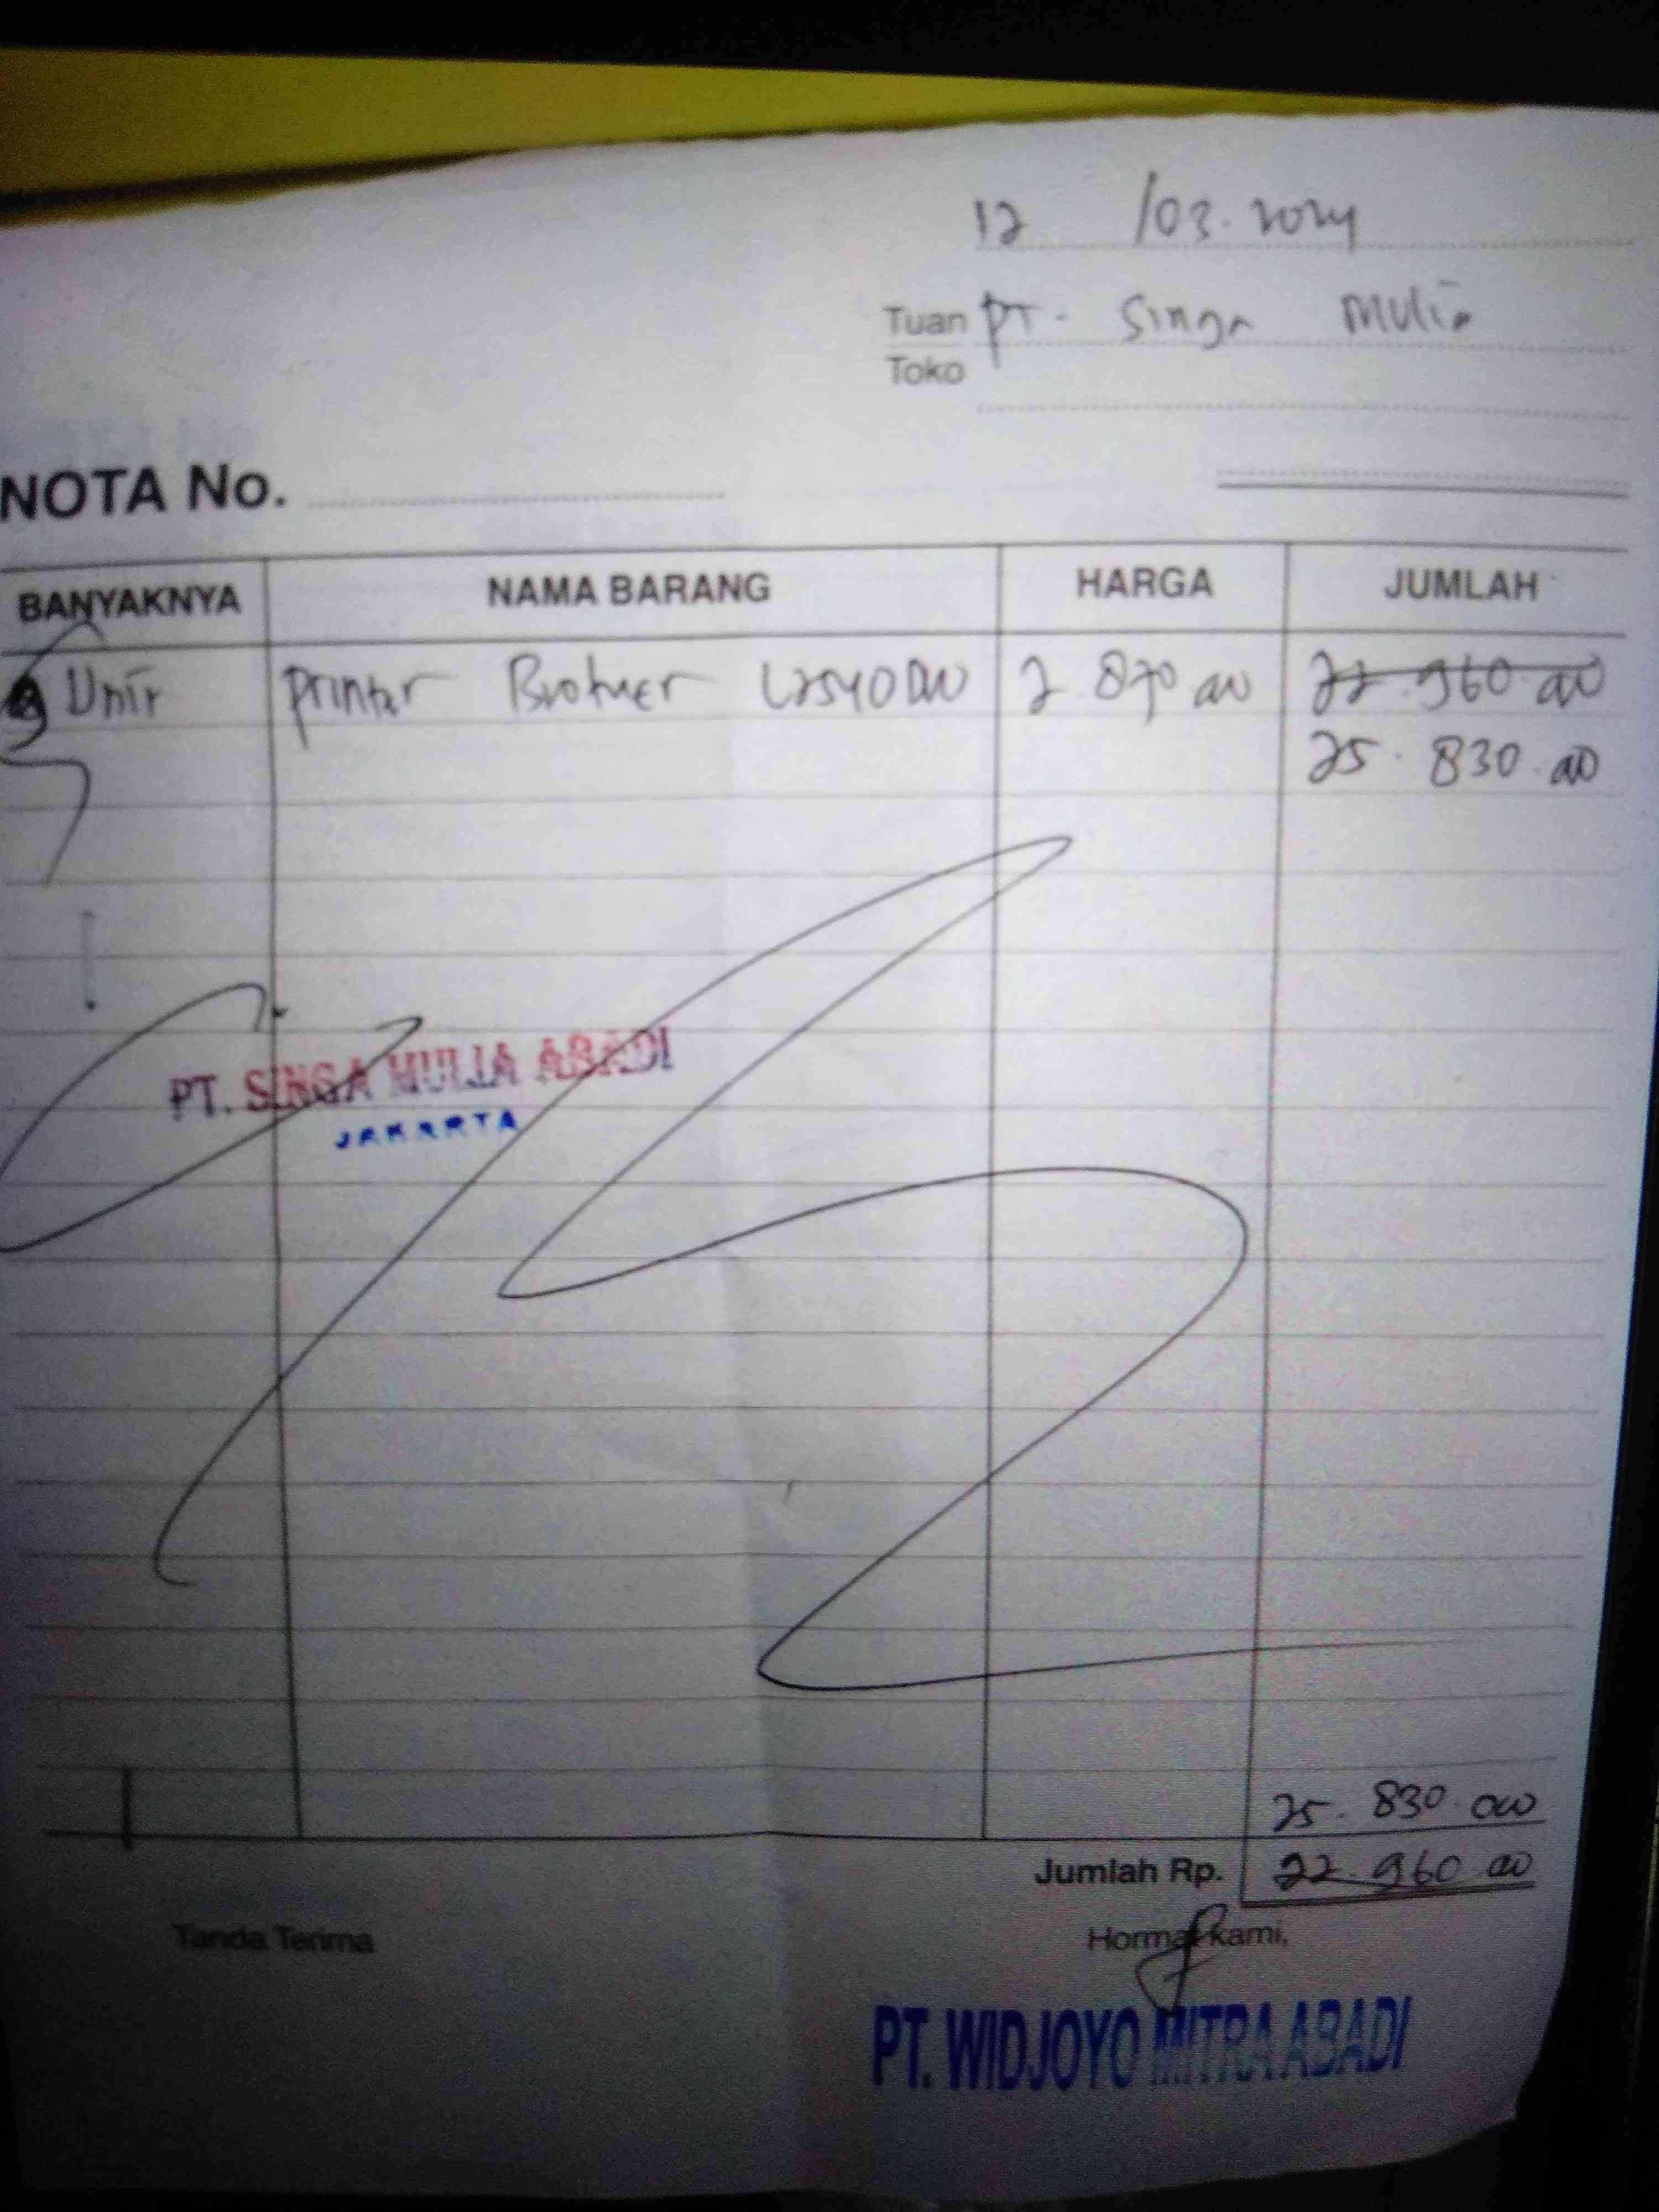 12 /03.2024
Tuan PT. Singa Mulia
Toko
NOTA No.
BANYAKNYA NAMA BARANG HARGA JUMLAH
9 Unit Printer Brother L2540DW 2.870.000 22.960.000
25.830.000
PT. SINGA MULIA ABADI
JAKARTA
25.830.000
Jumlah Rp. 22.960.000
Tanda Terima Hormat kami,
PT. WIDJOYO MITRA ABADI